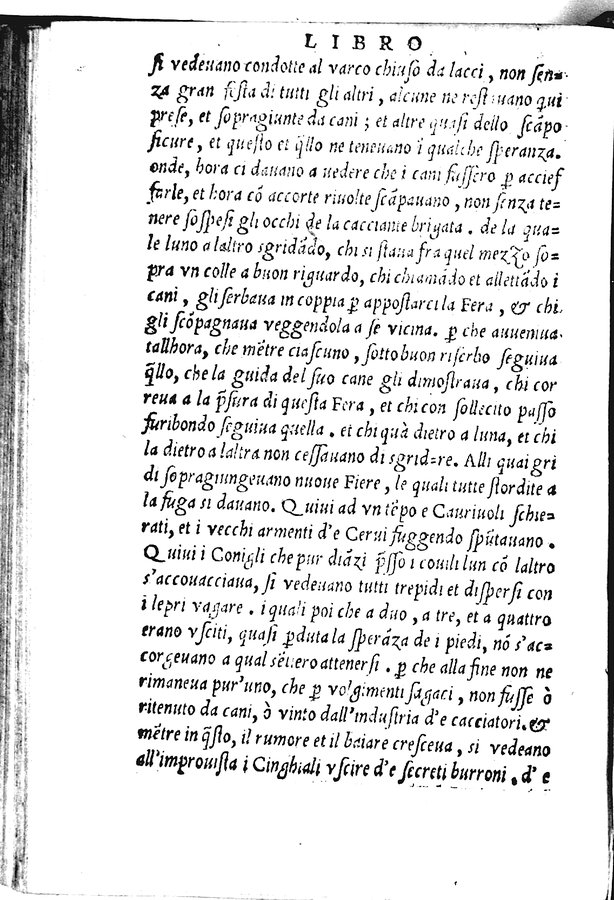 LIBRO
si vedevano condotte al varco chiuso da lacci, non sen=
za gran festa di tutti gli altri, alcune ne restavano qui
prese, et sopragiunte da cani; et altre quasi dello scãpo
sicure, et questo et q̃llo ne tenevano ĩ qualche speranza.
onde, hora ci davano a vedere che i cani fussero ꝑ accief
farle, et hora cõ accorte rivolte scãpavano, non senza te=
nere sospesi gli occhi de la cacciante brigata. de la qua=
le luno a laltro sgridãdo, chi si stava fra quel mezzo so=
pra vn colle a buon riguardo, chi chiamãdo et allettãdo i
cani, gli serbava in coppia ꝑ appostarci la Fera, & chi
gli scõpagnava veggendola a se vicina. ꝑ che avveniva
tallhora, che mẽtre ciascuno, sotto buon riserbo seguiva
q̃llo, che la guida del suo cane gli dimostrava, chi cor
reva a la p̃sura di questa Fera, et chi con sollecito passo
furibondo seguiva quella. et chi quà dietro a luna, et chi
la dietro a laltra non cessavano di sgridare. Alli quai gri
di sopragiungevano nuove Fiere, le quali tutte stordite a
la fuga si davano. Quivi ad vn tẽpo e Cavrivoli schie=
rati, et i vecchi armenti d'e Cervi fuggendo spũtavano.
Quivi i Conigli che pur diãzi p̃sso i covili lun cõ laltro
s'accovacciava, si vedevano tutti trepidi et dispersi con
i lepri vagare. i quali poi che a duo, a tre, et a quattro
erano vsciti, quasi ꝑduta la sperãza de i piedi, nõ s'ac=
corgevano a qual sẽtiero attenersi. ꝑ che alla fine non ne
rimaneva pur'uno, che ꝑ volgimenti sagaci, non fusse ò
ritenuto da cani, ò vinto dall'industria d'e cacciatori. &
mẽtre in q̃sto, il rumore et il baiare cresceva, si vedeano
all'improvista i Cinghiali vscire d'e secreti burroni. d'e